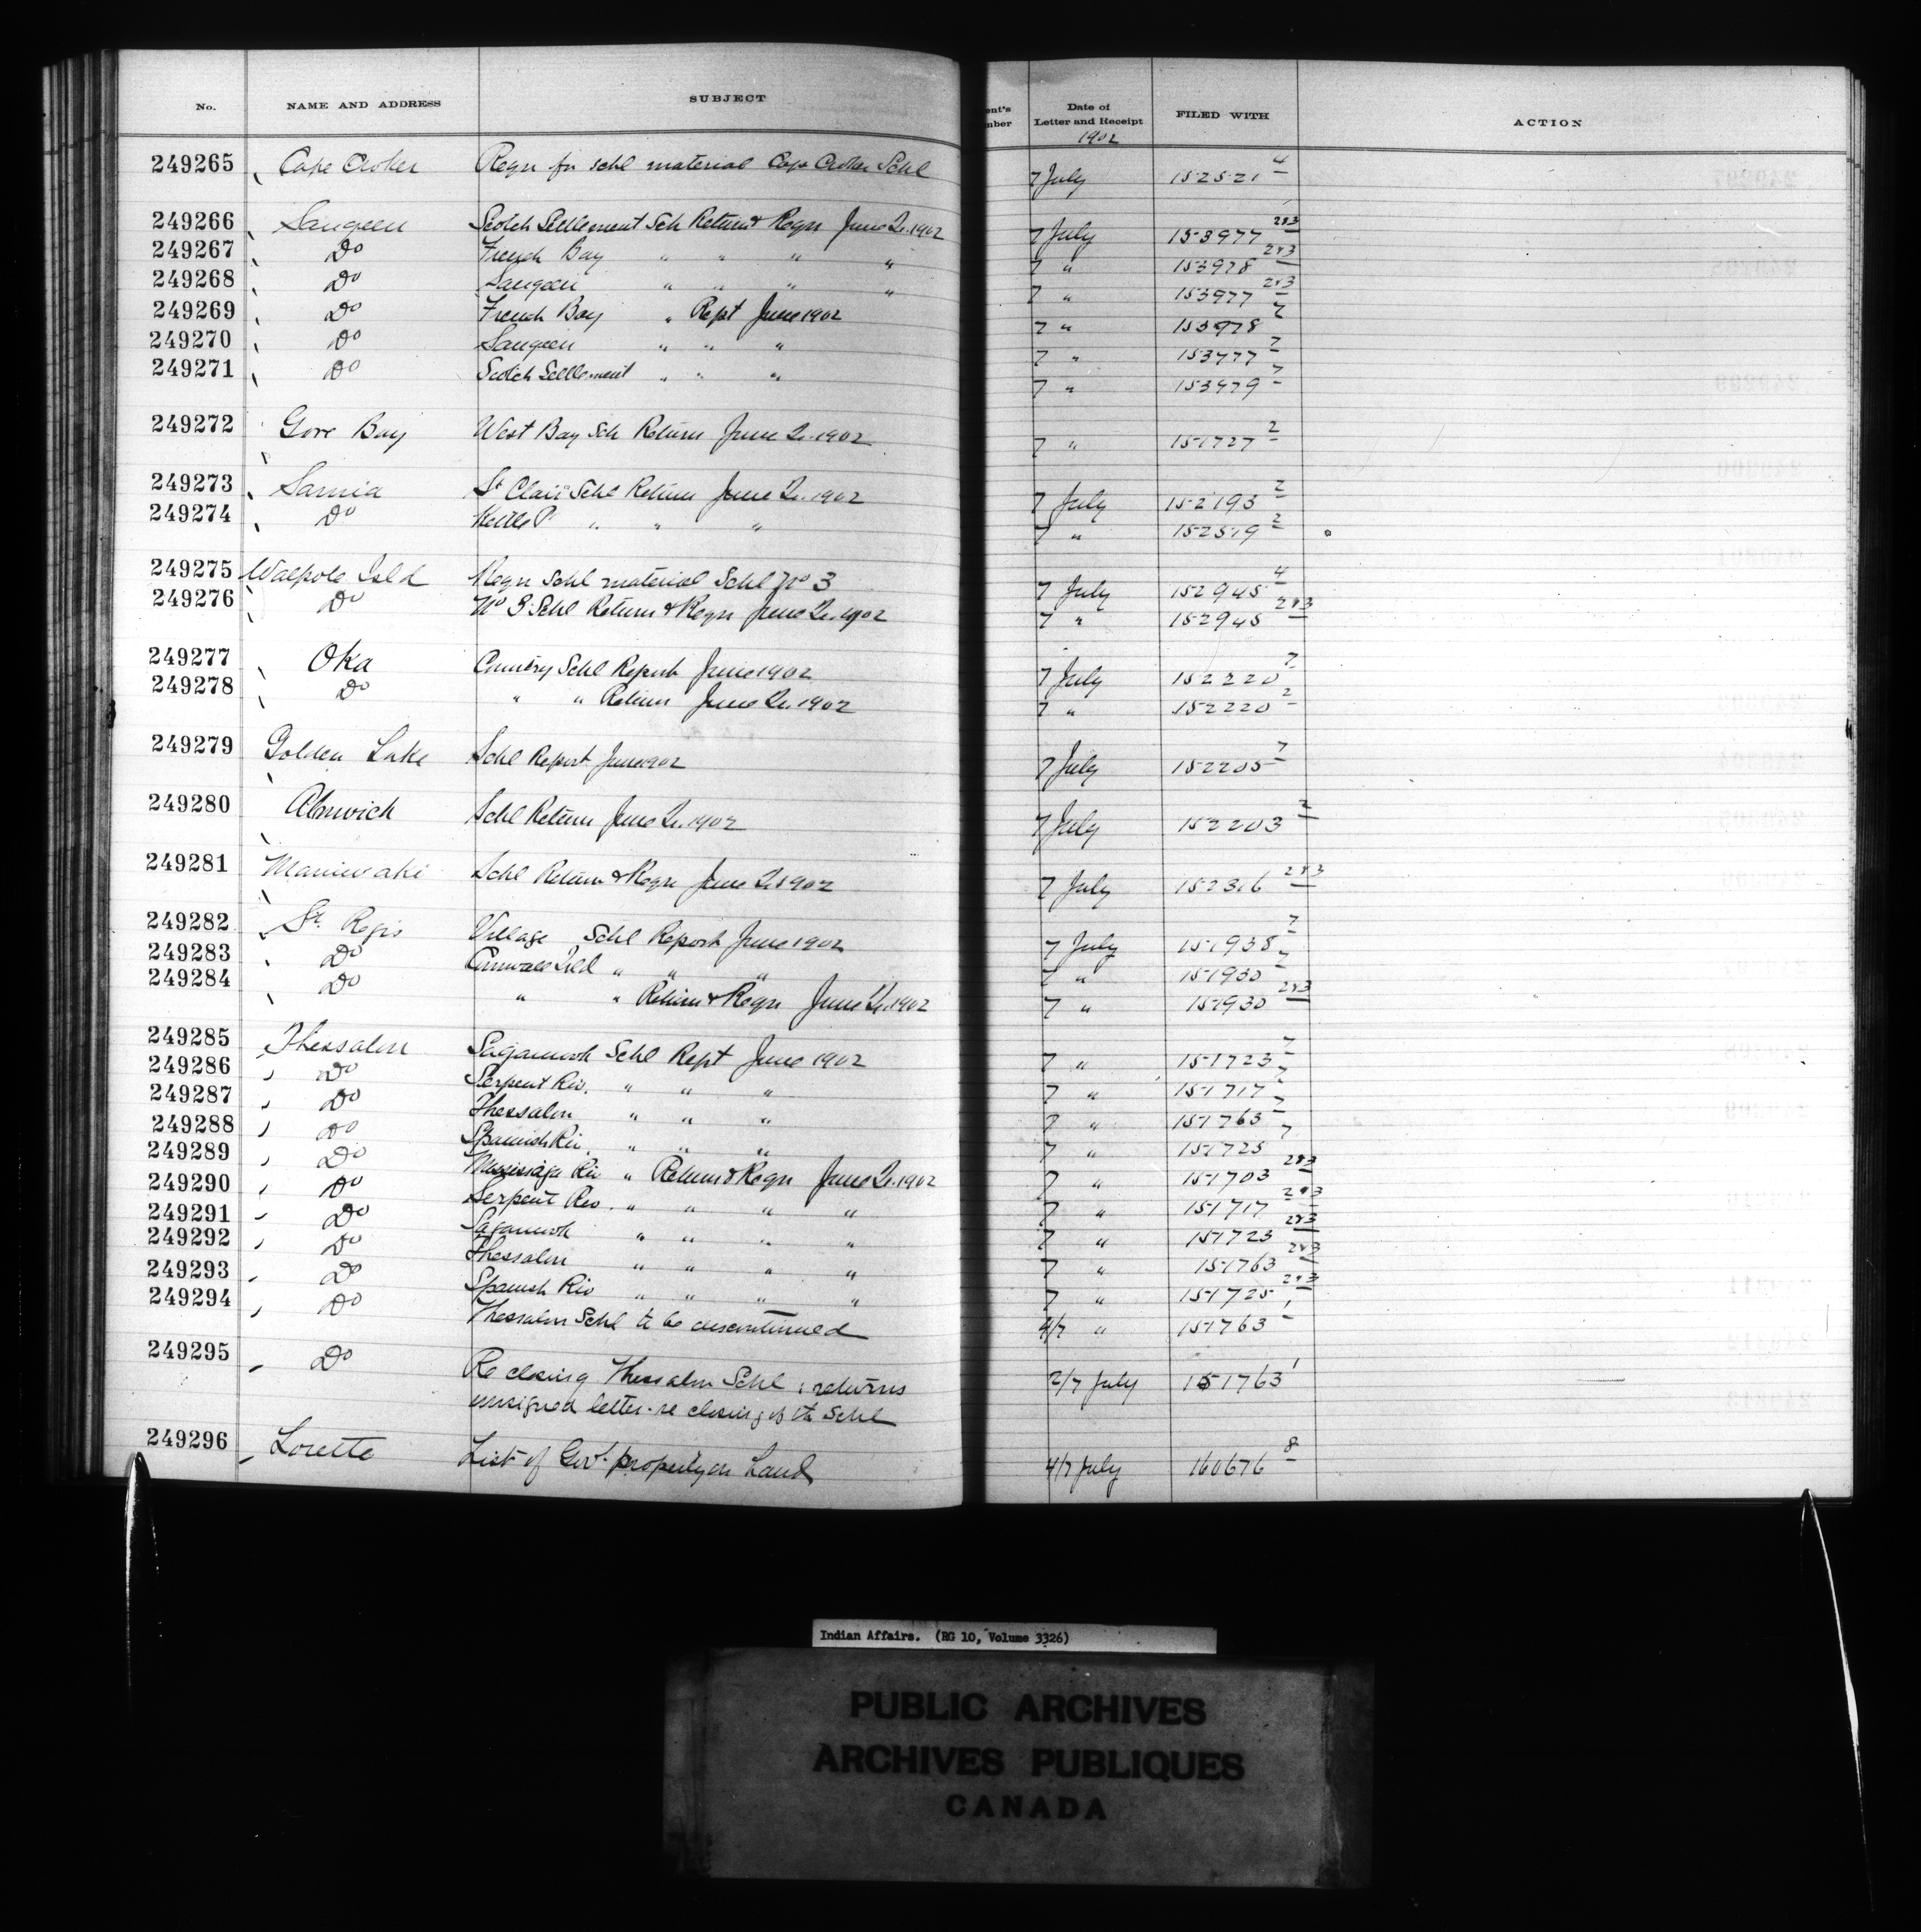 No. NAME AND ADDRESS SUBJECT ent's mber Date of Letter and Receipt FILED WITH ACTION
1902
249265 Cape Croker Reqn for schl material Cape Croker Schl 7 July 152521 4
249266 Saugeen Scotch Settlement Sch Return & Reqn June Qr. 1902 7 July 2&3
249267 Do French Bay " " " " 7 " 153978 2&3
249268 Do Saugeen " " " " 7 " 153977 2&3
249269 Do French Bay " Rept June 1902 7 " 153978 7
249270 Do Saugeen " " " 7 " 153977 7
249271 Do Scotch Settlement " " " 7 " 153979 7
249272 Gore Bay West Bay Sch Return June Qr. 1902 7 " 151727 2
249273 Sarnia St Clair Schl Return June Qr. 1902 7 July 152193 2
249274 Do Kettle P. " " " 7 " 152519 2
249275 Walpole Isld Reqn Schl material Schl No 3 7 July 152945 4
249276 Do No 3 Schl Return & Reqn June Qr. 1902 7 " 152945 2&3
249277 Oka Country Schl Report June 1902 7 July 152220 7
249278 Do " " Return June Qr. 1902 7 " 152220 2
249279 Golden Lake Schl Report June 1902 7 July 152205 7
249280 Alnwick Schl Return June Qr. 1902 7 July 152203 2
249281 Maniwaki Schl Return & Reqn June Qr 1902 7 July 152316 2&3
249282 St. Regis Village Schl Report June 1902 7 July 151938 7
249283 Do Cornwall Isld " " " 7 " 151930 7
249284 Do " " Return & Reqn June Qr. 1902 7 " 151930 2&3
249285 Thessalon Sagamook Schl Rept June 1902 7 " 151723 7
249286 Do Serpent Riv. " " " 7 " 151717 7
249287 Do Thessalon " " " 7 " 151763 7
249288 Do Spanish Riv. " " " 7 " 151725 7
249289 Do Mississaga Riv " Return & Reqn June Qr. 1902 7 " 151703 2&3
249290 Do Serpent Riv. " " " " 7 " 151717 2&3
249291 Do Sagamook " " " " 7 " 151723 2&3
249292 Do Thessalon " " " " 7 " 151763 2&3
249293 Do Spanish Riv " " " " 7 " 151725 2&3
249294 Do Thessalon Schl to be discontinued 4/7 " 151763 1
249295 Do Re closing Thessalon Schl & returns 2/7 July 151763 1
unsigned letter re closing of the Schl
249296 Lorette List of Govt. property on Land 4/7 July 160676 8
Indian Affairs. (RG 10, Volume 3326)
PUBLIC ARCHIVES
ARCHIVES PUBLIQUES
CANADA